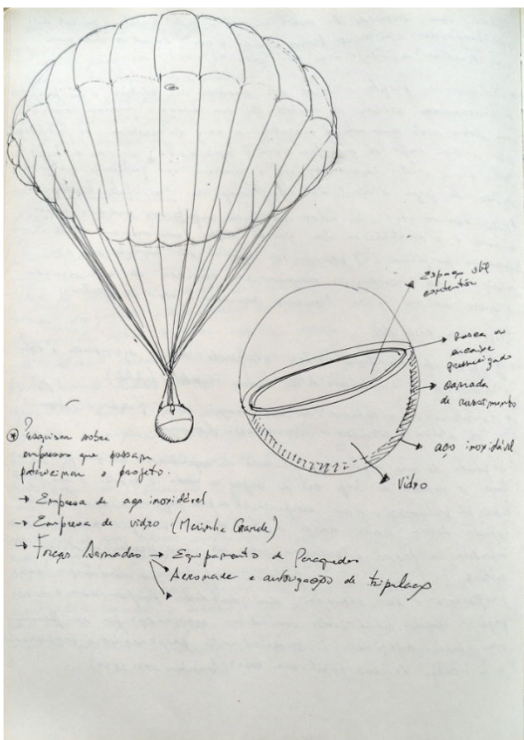 Espaço útil
Rosca ou
encaixe
pressurizado
Camada
de
aço inoxidável
Vidro
Pesquisar sobre
empresas que possam
patrocinar o projeto.
→ Empresa de aço inoxidável
→ Empresa de vidro (Marinha Grande)
→ Forças Armadas → Equipamento de Paraquedas
Aeronave e autorização de tripulação